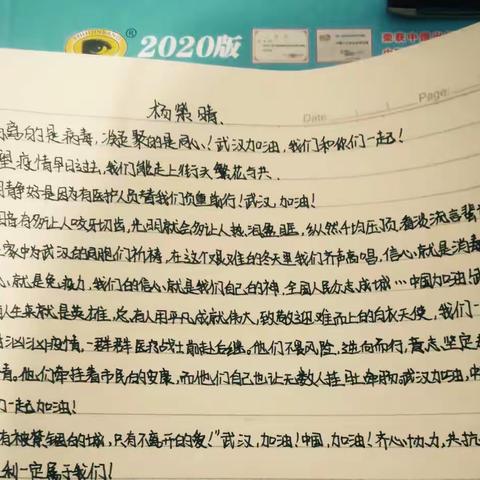 2020版
荣获中国
Date
Page:
杨紫晴
离的是病毒,凝聚的是同心!武汉加油,我们和你们一起!
疫情早日过去,我们能走上街头繁花与共.
静好是因为有医护人员替我们负重前行!武汉,加油!
暗有多让人咬牙切齿,光明就会多让人热泪盈眶,纵然千均压顶,看漫流言蜚
家中为武汉的同胞们祈祷,在这个艰难的冬天里我们齐声高唱,信心就是消毒
就是免疫力,我们的信心就是我们自己的神,全国人民万志成城…中国加油!武
人生来就是英雄,总有人用平凡成就伟大,致敬迎难而上的白衣天使,我们一
汹汹疫情,一群群医疗战士前赴后继。他们不畏风险,逆向而行,意志坚定
着。他们牵挂着市民的安康,而他们自己也让无数人牵肚
武汉加油,中
们一起加油!
有被禁锢的城,只有不离开的爱!"武汉,加油!中国,加油!齐心协力,共抗
利一定属于我们!